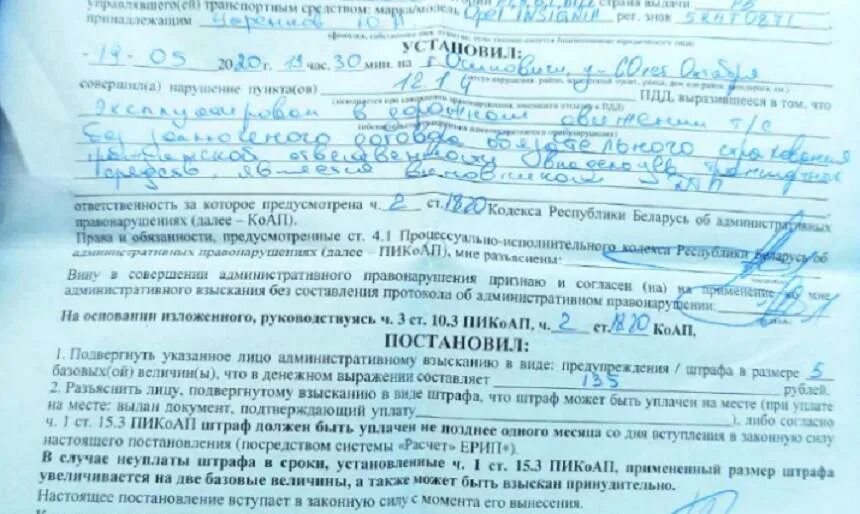 управлявшего(ей) транспортным средством: марка/модель Opel INSIGNIA рег. знак
принадлежащим
УСТАНОВИЛ:
19 05 2020г. 19 час. 30 мин. на г. Осиповичи, ул. 60 лет Октября
совершил(а) нарушение пункта(ов) ПДД, выразившееся в том, что
эксплуатировал в дорожном движении т/с
без договора обязательного страхования
гражданской ответственности владельцев транспортных
средств, является виновником ДТП
ответственность за которое предусмотрена ч. 2 ст. 18.20 Кодекса Республики Беларусь об административных
правонарушениях (далее – КоАП).
Права и обязанности, предусмотренные ст. 4.1 Процессуально-исполнительного кодекса Республики Беларусь об
административных правонарушениях (далее – ПИКоАП), мне разъяснены:
Вину в совершении административного правонарушения признаю и согласен (на) на применение ко мне
административного взыскания без составления протокола об административном правонарушении:
На основании изложенного, руководствуясь ч. 3 ст. 10.3 ПИКоАП, ч. 2 ст. 18.20 КоАП,
ПОСТАНОВИЛ:
1. Подвергнуть указанное лицо административному взысканию в виде: предупреждения / штрафа в размере 5
базовых(ой) величин(ы), что в денежном выражении составляет 135 рублей.
2. Разъяснить лицу, подвергнутому взысканию в виде штрафа, что штраф может быть уплачен на месте (при уплате
на месте: выдан документ, подтверждающий уплату ), либо согласно
ч. 1 ст. 15.3 ПИКоАП штраф должен быть уплачен не позднее одного месяца со дня вступления в законную силу
настоящего постановления (посредством системы «Расчет» ЕРИП»).
В случае неуплаты штрафа в сроки, установленные ч. 1 ст. 15.3 ПИКоАП, примененный размер штрафа
увеличивается на две базовые величины, а также может быть взыскан принудительно.
Настоящее постановление вступает в законную силу с момента его вынесения.